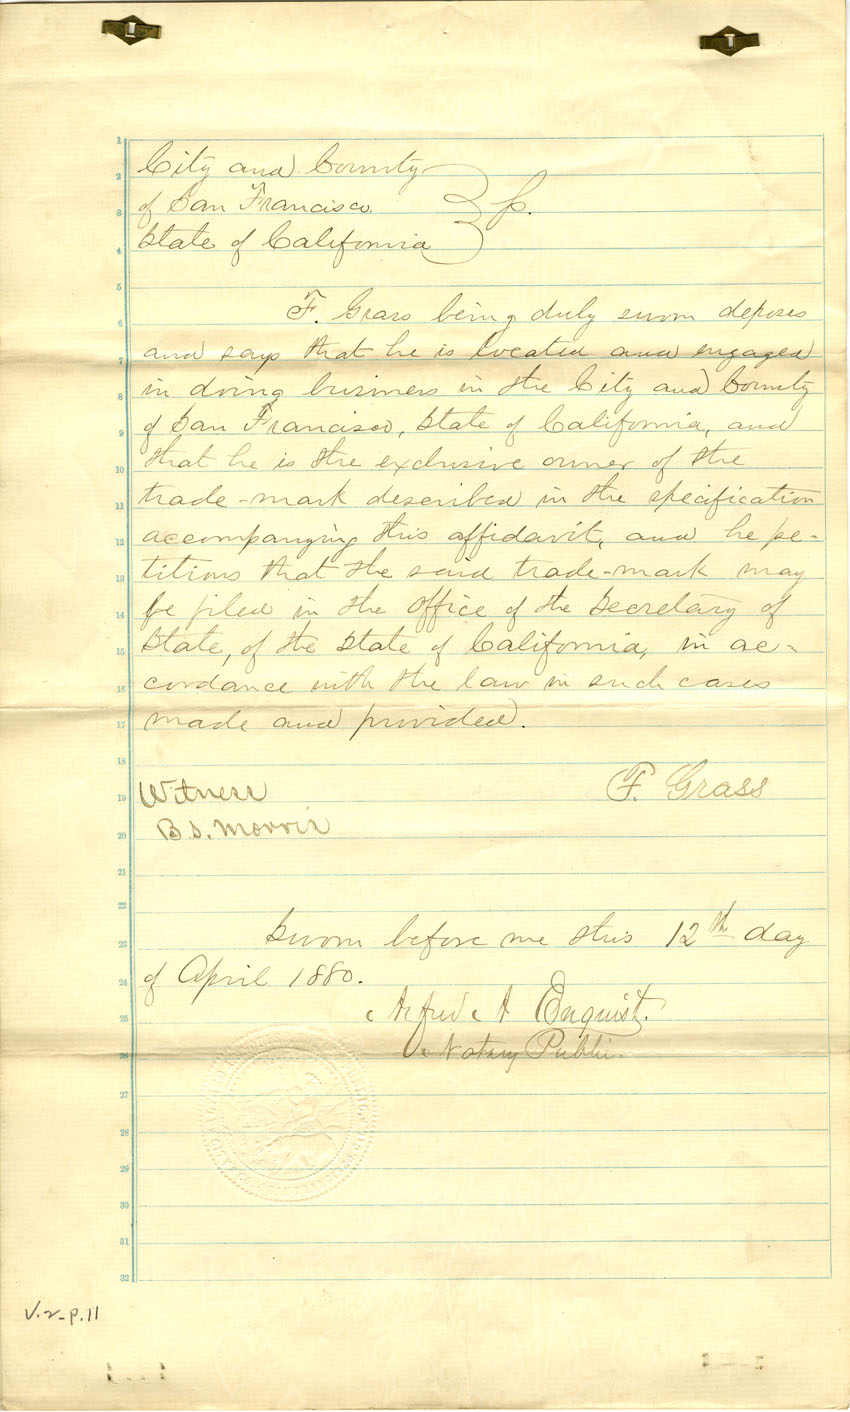 City and County
of San Francisco.
State of California
F. Grass being duly sworn deposes
and says that he is located and engaged
in doing business in the City and County
of San Francisco, State of California, and
that he is the exclusive owner of the
trade-mark described in the specification
accompanying this affidavit, and he pe-
titions that the said trade-mark may
be filed in the office of the Secretary of
State, of the State of California, in ac-
cordance with the law in such cases
made and provided.
F. Grass
Witness
B. S. Morris
Sworn before me this 12th day
of April 1880.
Alfred A Enquist.
Notary Public.
V.2-p.11
1
2
3
4
5
6
7
8
9
10
11
12
13
14
15
16
17
18
19
20
21
22
23
24
25
26
27
28
29
30
31
32